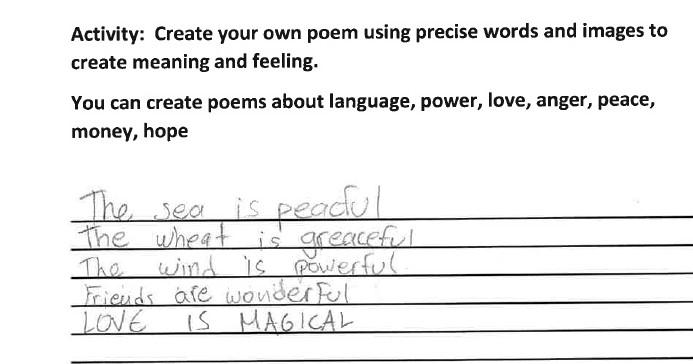 Activity: Create your own poem using precise words and images to
create meaning and feeling.
You can create poems about language, power, love, anger, peace,
money, hope
The sea is peacful
The wheat is greaceful
The wind is powerful
Friends are wonderful
LOVE IS MAGICAL